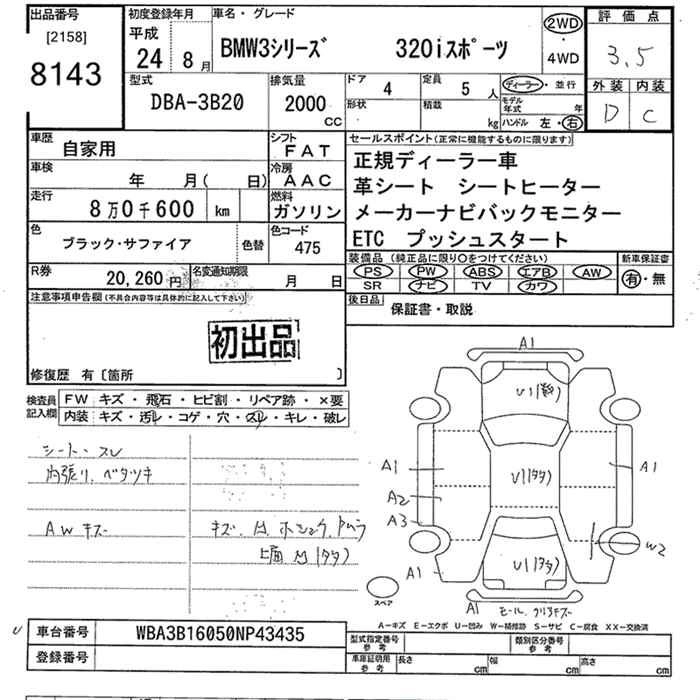 出品番号
[2158]
8143
初度登録年月
平成
24 8月
車名・グレード
BMW3シリーズ 320iスポーツ
2WD
4WD
評価点
3.5
外装 内装
D C
型式
DBA-3B20
排気量
2000
CC
ドア 4
定員 5 人
形状
積載
kg
ディーラー・並行
モデル年式 年
ハンドル 左・右
車歴
自家用
シフト
FAT
車検
年 月( 日)
冷房
AAC
走行
8万0千600 km
燃料
ガソリン
色
ブラック・サファイア
色替
色コード
475
R券
20,260 円
名変通知期限
月 日
セールスポイント(正常に機能するものに限ります)
正規ディーラー車
革シート シートヒーター
メーカーナビバックモニター
ETC プッシュスタート
装備品(純正品に限り〇をつけてください)
PS PW ABS エアB AW
SR ナビ TV カワ
新車保証書
有・無
後日品
保証書・取説
注意事項申告欄(不具合内容等は具体的に記入して下さい)
初出品
修復歴 有〔箇所 〕
検査員記入欄
FW キズ・飛石・ヒビ割・リペア跡・×要
内装 キズ・汚れ・コゲ・穴・スレ・キレ・破レ
シート・スレ
内張り、ベタツキ
AWキズ
キズ、凹、
上面凹(タタ)
A1
U1(
A1
U1(タタ)
A1
A2
A3
W2
U1(タタ)
A1
A1
スペア
A1
モール、クリアキズー
A-キズ E-エクボ U-凹み W-補修跡 S-サビ C-腐食 XX-交換済
車台番号
WBA3B16050NP43435
登録番号
型式指定番号
参考
類別区分番号
参考
車庫証明用
参考
長さ cm
幅 cm
高さ cm